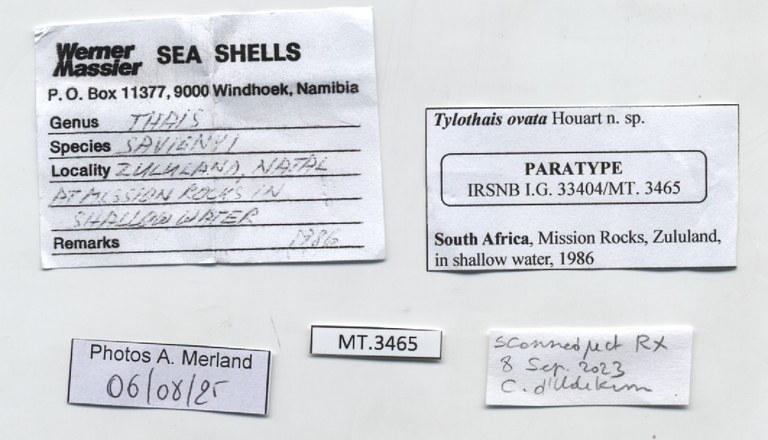 Werner Massier SEA SHELLS
P.O. Box 11377, 9000 Windhoek, Namibia
Genus THAIS
Species SAVIGNYI
Locality ZULULAND, NATAL
AT MISSION ROCKS IN
SHALLOW WATER
Remarks 1986
Tylothais ovata Houart n. sp.
PARATYPE
IRSNB I.G. 33404/MT. 3465
South Africa, Mission Rocks, Zululand,
in shallow water, 1986
Photos A. Merland
06/08/25
MT.3465
RX
8 Sep. 2023
C. d'Udekem